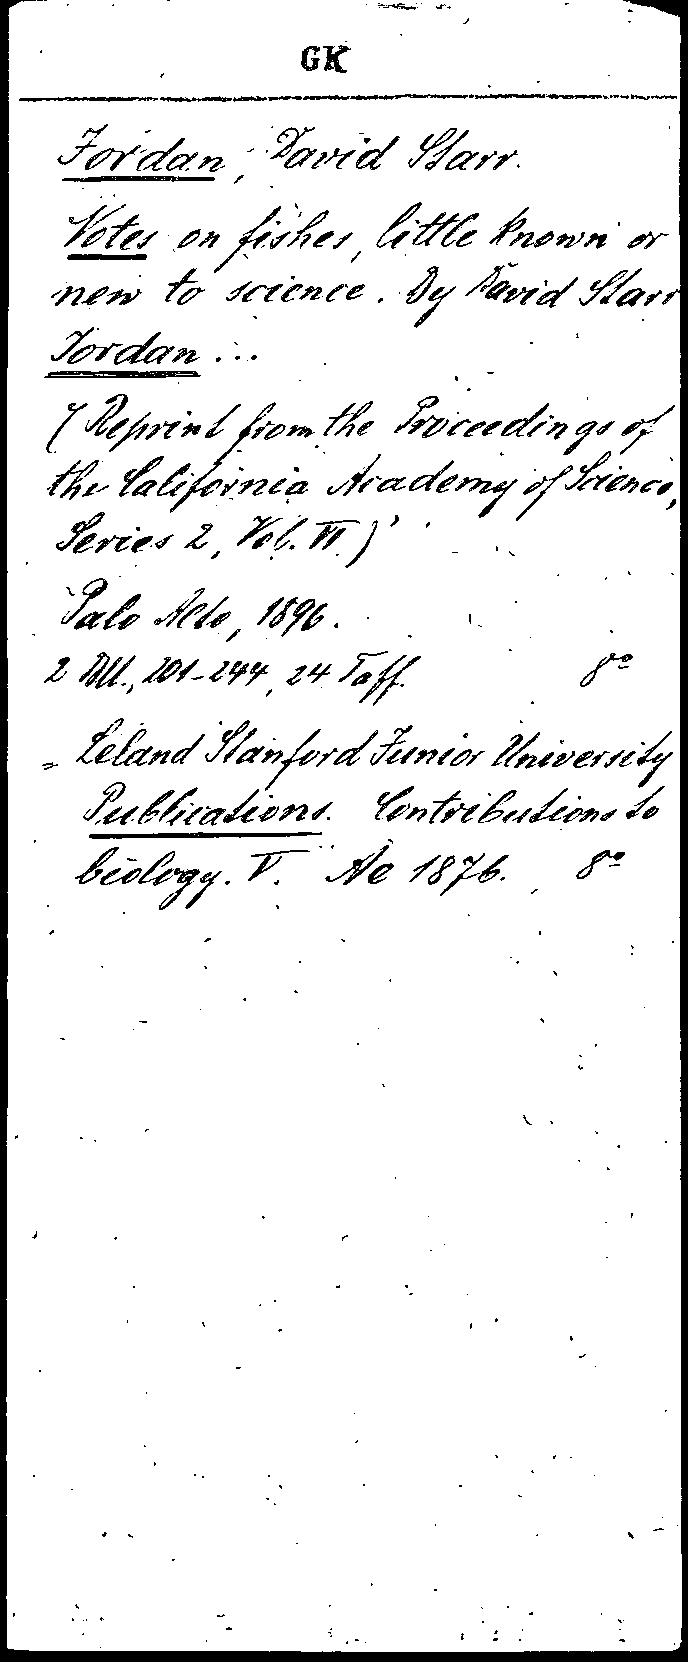 GK
Jordan, David Starr.
Notes on fishes, little known or
new to science. By David Starr
Jordan ...
(Reprint from the Proceedings of
the California Academy of Science,
Series 2, Vol. VI)
Palo Alto, 1896.
2 Bll., 201-244, 24 Taff. 8°
= Leland Stanford Junior University
Publications. Contributions to
biology. V. Ae 1876. 8°